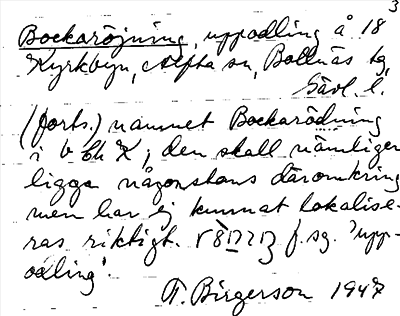 3
Bockaröjning, uppodling å 18
Kyrkbyn, Alfta sn, Bollnäs tg,
Gävl. l.
(forts.) namnet Bockarödning
i b K; den skall nämligen
ligga någonstans däromkring
men har ej kunnat lokalise-
ras riktigt. f. sg. 'upp-
odling'.
T. Birgerson 1947